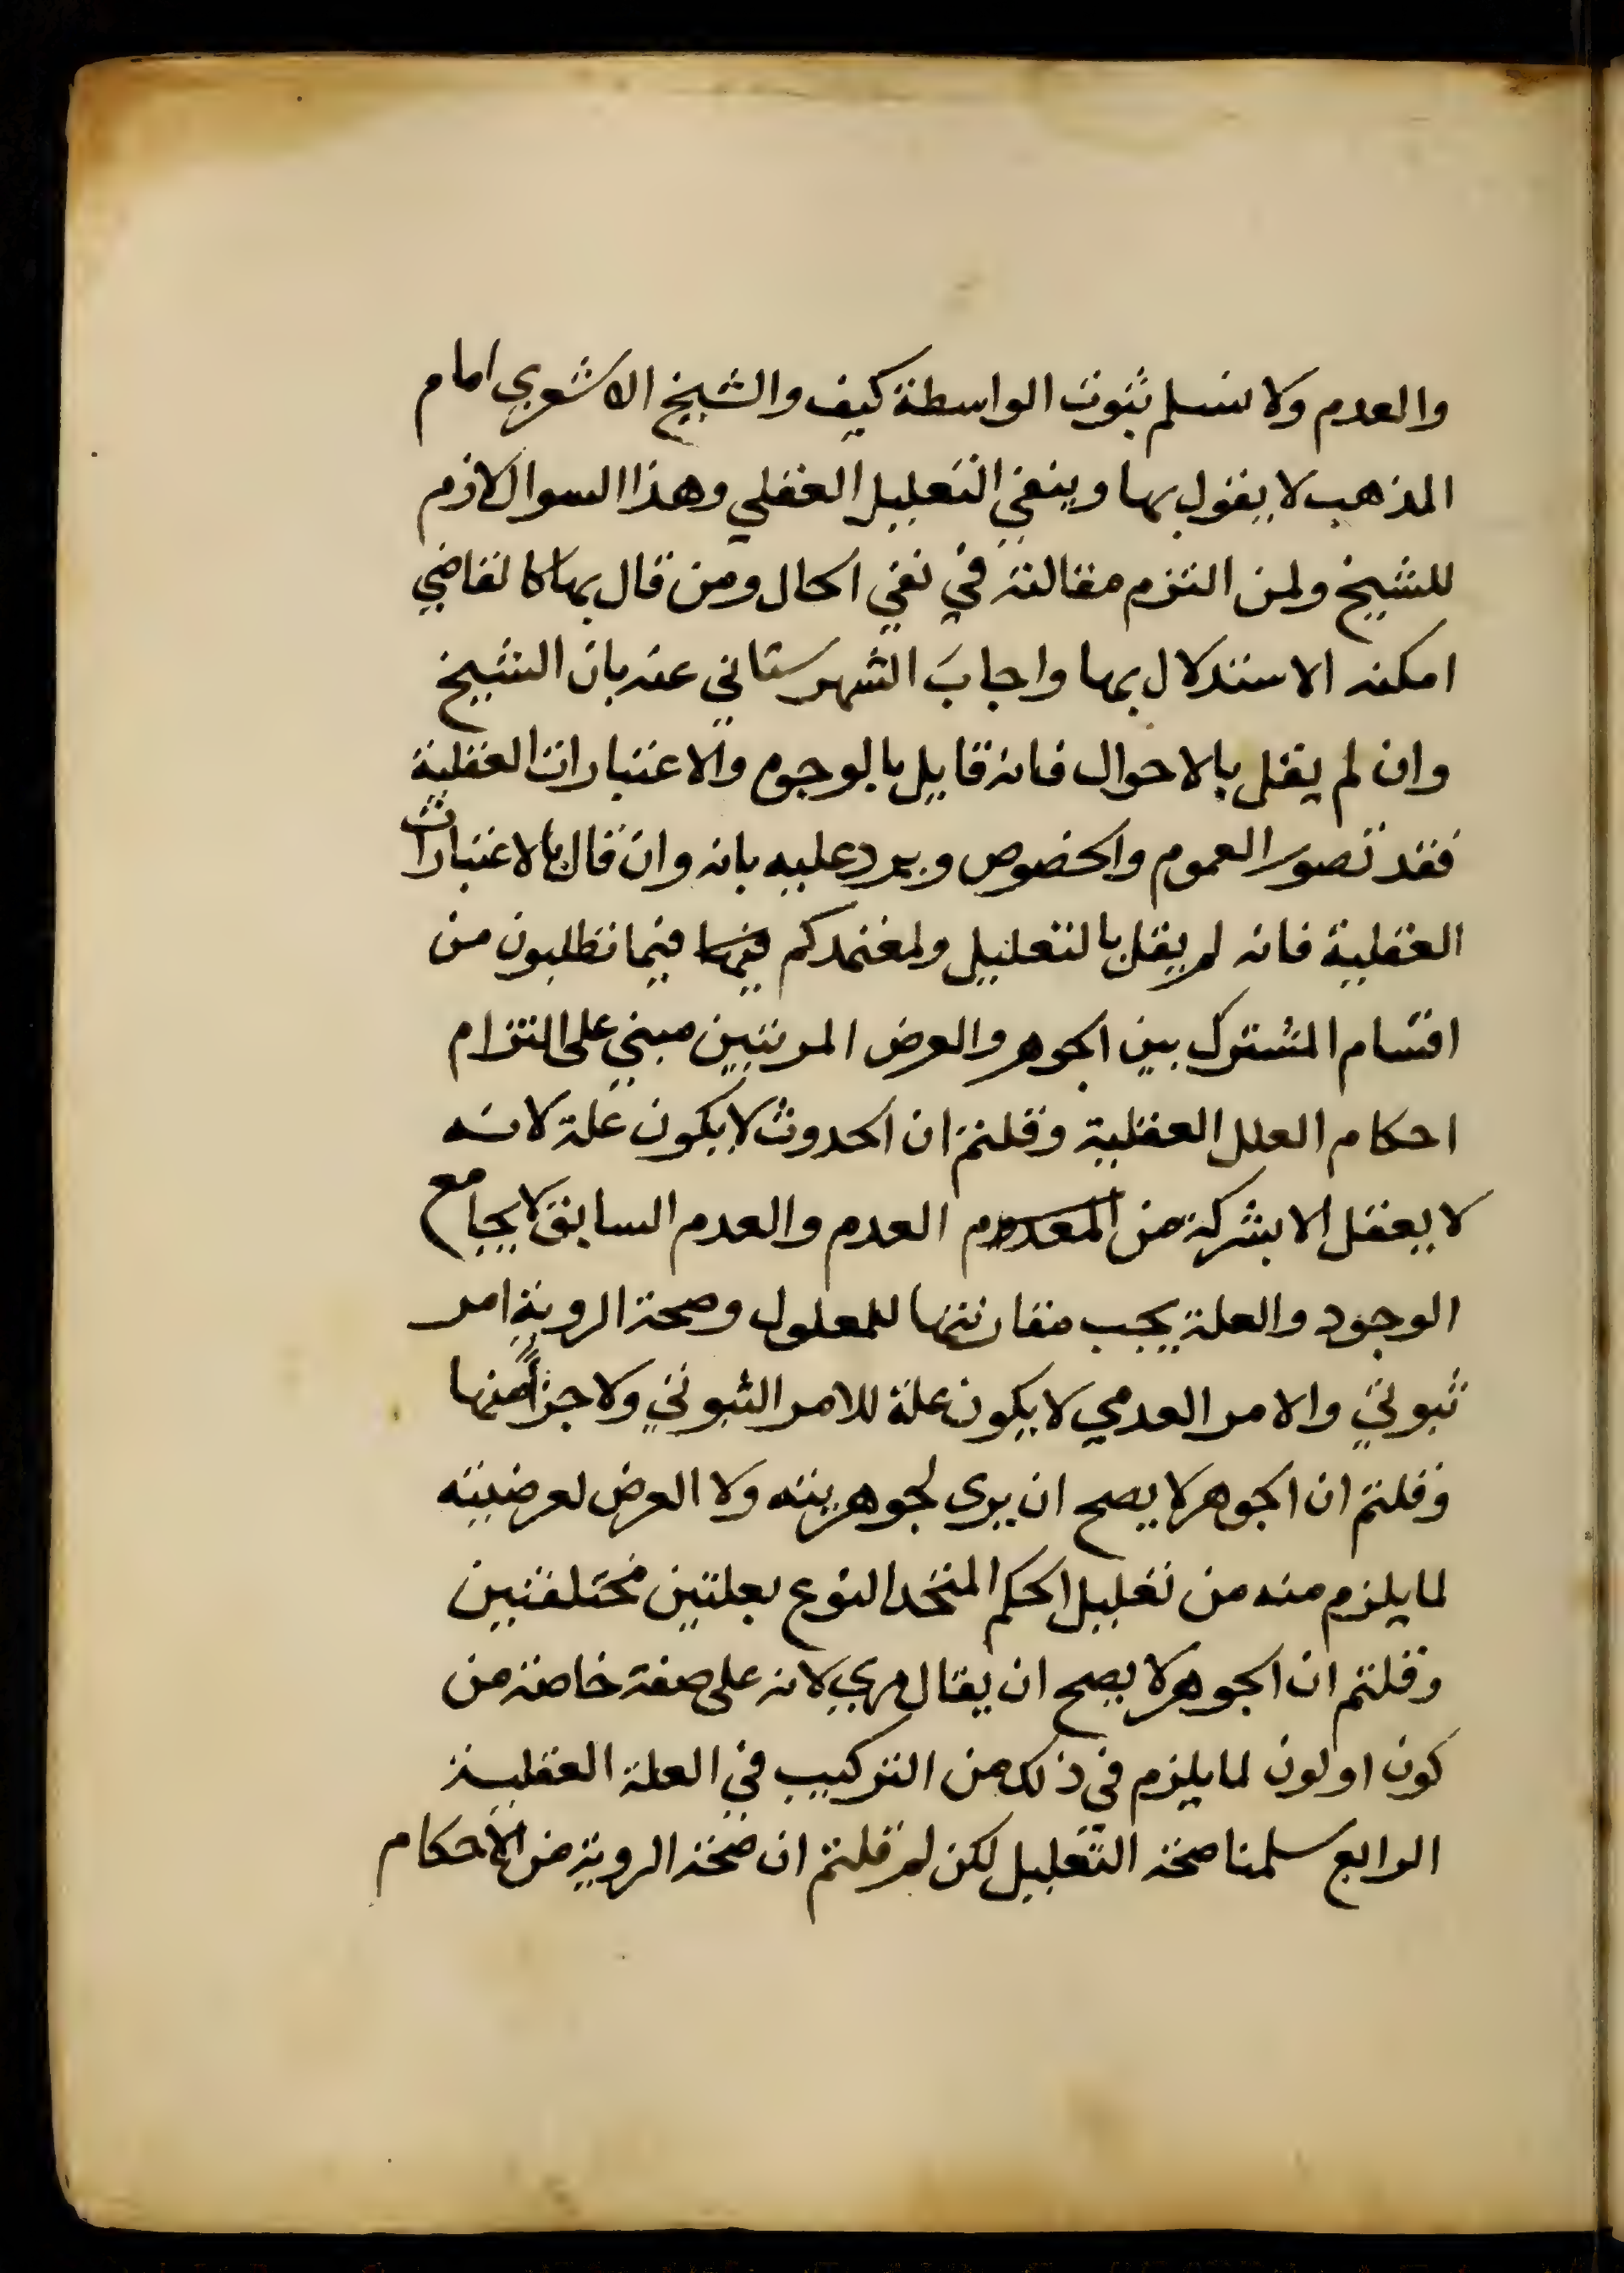 والعدم ولا نسلم ثبوت الواسطة كيف والشيخ الاشعري امام
المذهب لا يقول بها وينفي التعليل العقلي وهذا السوال لازم
للشيخ ولمن التزم مقالته في نفي الحال ومن قال بها كالقاضي
امكنه الاستدلال بها واجابَ الشهرستاني عنه بان الشيخ
وان لم يقل بالاحوال فانه قايل بالوجوه والاعتبارات العقلية
فقد تصور العموم والخصوص ويرد عليه بانه وان قال بالاعتبارات
العقلية فانه لم يقل بالتعليل ولمعتمدكم فيما تطلبون من
اقتسام المشترك بين الجوهر والعرض المرئيين مبني على التزام
احكام العلل العقلية وقلتم ان الحدوث لا يكون علة لانه
لا يعقل الا بشركة من المعدوم العدم والعدم السابق لا يجامع
الوجود والعلة يجب مقارنتها للمعلول وصحة الروية امر
ثبوتي والامر العدمي لا يكون علة للامر الثبوتي ولا جزأً منها
وقلتم ان الجوهر لا يصح ان يرى لجوهريته ولا العرض لعرضيته
لما يلزم منه من تعليل الحكم المتحد النوع بعلتين مختلفتين
وقلتم ان الجوهر لا يصح ان يقال مريي لانه على صفة خاصة من
كون اولون لما يلزم في ذلك من التركيب في العلة العقلية
الرابع سلمنا صحة التعليل لكن لم قلتم ان صحة الروية من الاحكام